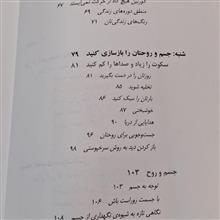 منطق دوره‌های زندگی ۶۹
رنگ‌های زندگی‌تان ۷۱
شنبه: جسم و روحتان را بازسازی کنید ۷۹
سکوت را زیاد و صداها را کم کنید ۸۱
روزتان را در دست بگیرید ۸۱
تخلیه شوید ۸۵
بارتان را سبک کنید ۸۶
خوشبختی ۸۷
هدایایی از دریا ۹۰
جست‌وجویی برای روحتان ۹۶
باز کردن دید به روش سرخپوستی ۹۸
جسم و روح ۱۰۳
توجه به جسم ۱۰۳
دوست روراست باش ۱۰۶
نگاهی تازه به شیوه‌ی نگهداری از جسم ۱۰۸